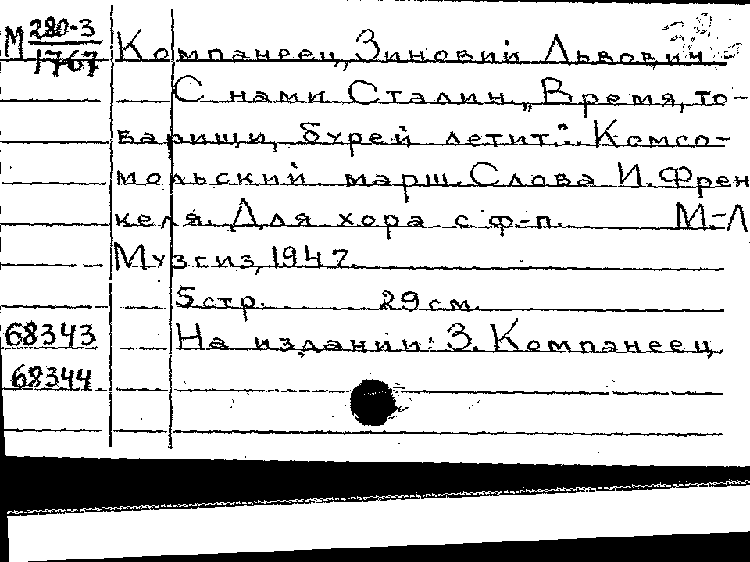 М 280-3
1767
Компанеец, Зиновий Львович
С нами Сталин. „Время, то-
варищи, бурей летит." Комсо-
мольский марш. Слова И. Френ
келя. Для хора с ф-п. М.-Л
Музгиз, 1947.
5 стр. 29 см.
68343 На издании: З. Компанеец
68344